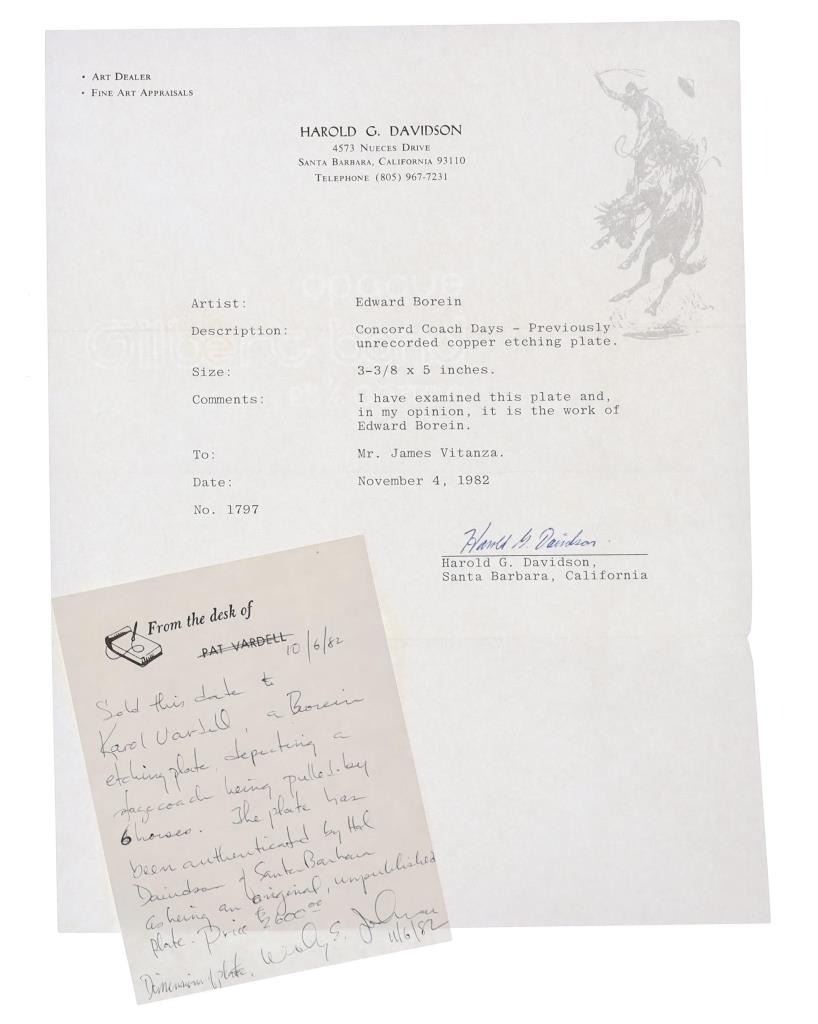 • ART DEALER
• FINE ART APPRAISALS
HAROLD G. DAVIDSON
4573 NUECES DRIVE
SANTA BARBARA, CALIFORNIA 93110
TELEPHONE (805) 967-7231
Artist: Edward Borein
Description: Concord Coach Days - Previously
unrecorded copper etching plate.
Size: 3-3/8 x 5 inches.
Comments: I have examined this plate and,
in my opinion, it is the work of
Edward Borein.
To: Mr. James Vitanza.
Date: November 4, 1982
No. 1797
Harold G. Davidson
Harold G. Davidson,
Santa Barbara, California
From the desk of
PAT VARDELL 10/6/82
Sold this date to
Karol Vardell, a Borein
etching plate, depicting a
stagecoach being pulled by
6 horses. The plate has
been authenticated by Hal
Davidson of Santa Barbara
as being an original, unpublished
plate. Price $600.00
Dimension of plate, 11/6/82